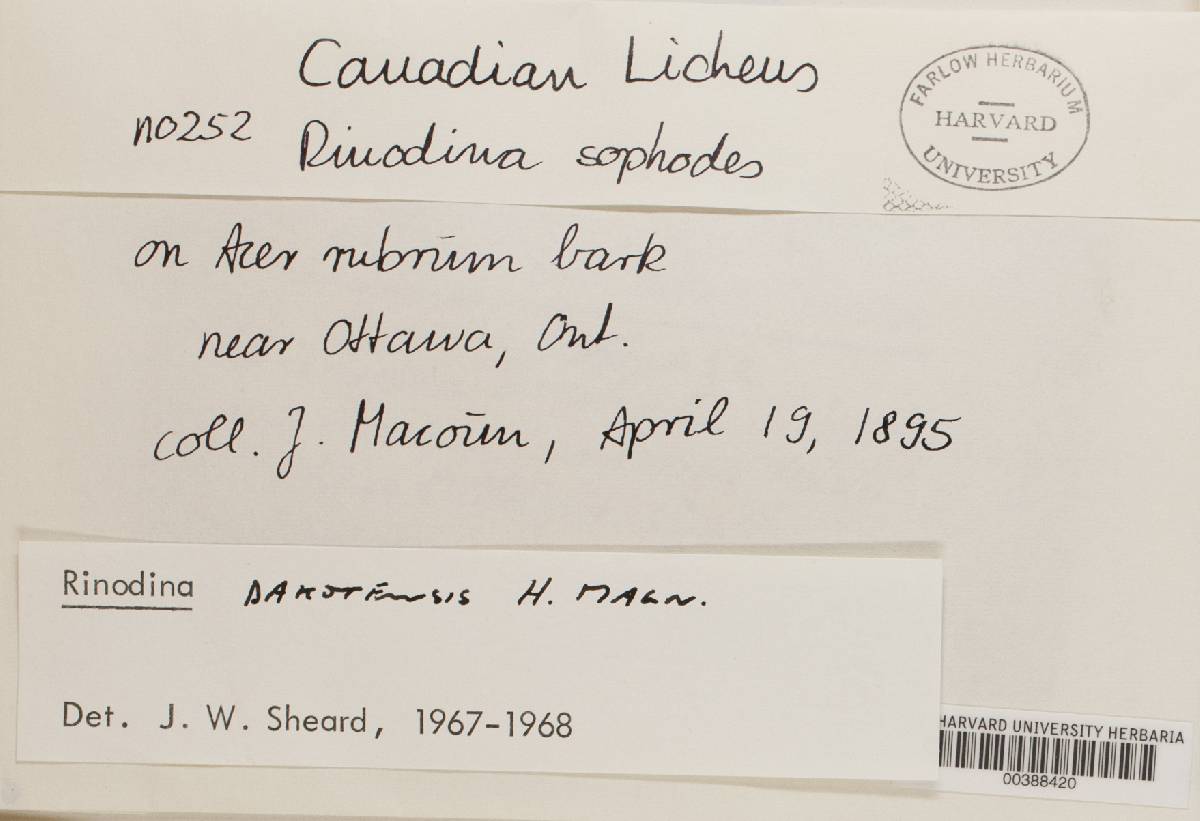 Canadian Lichens
no252 Rinodina sophodes
FARLOW HERBARIUM
HARVARD
UNIVERSITY
on Acer rubrum bark
near Ottawa, Ont.
coll. J. Macoun, April 19, 1895
Rinodina DAKOTENSIS H. MAGN.
Det. J. W. Sheard, 1967-1968
HARVARD UNIVERSITY HERBARIA
00388420